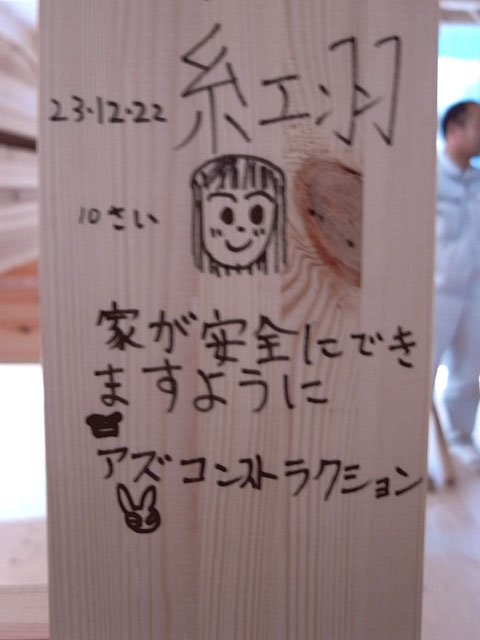 紅羽
23・12・22
10さい
家が安全にでき
ますように
アズコンストラクション